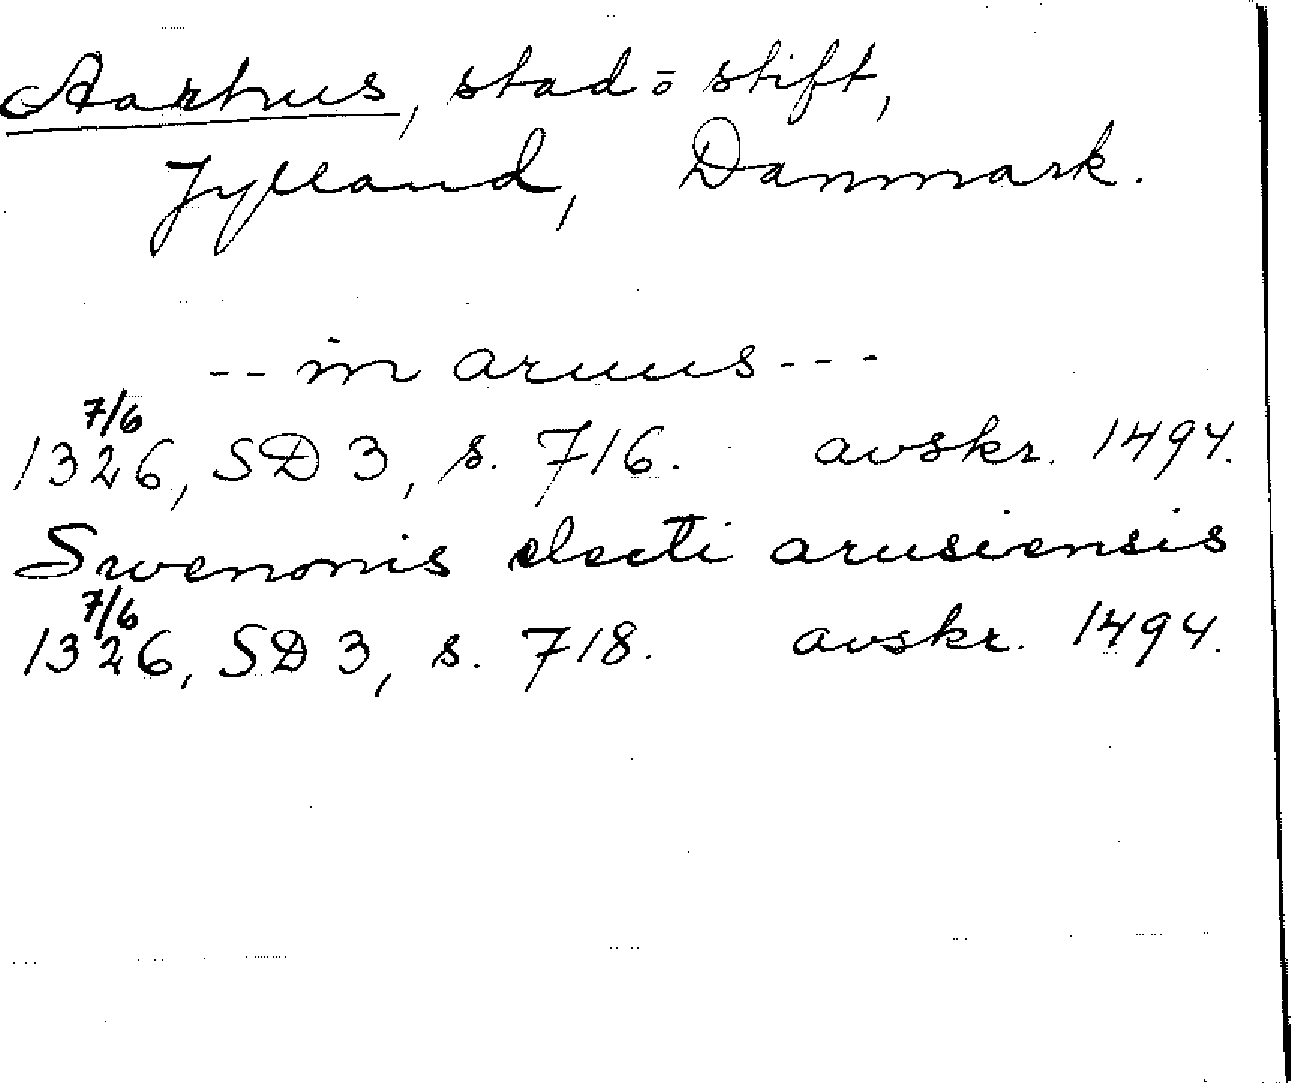 Aarhus, stad o stift,
Jylland, Danmark.
-- in aruus ---
1326 7/6, SD 3, s. 716. avskr. 1494.
Swenonis electi arusiensis
1326 7/6, SD 3, s. 718. avskr. 1494.